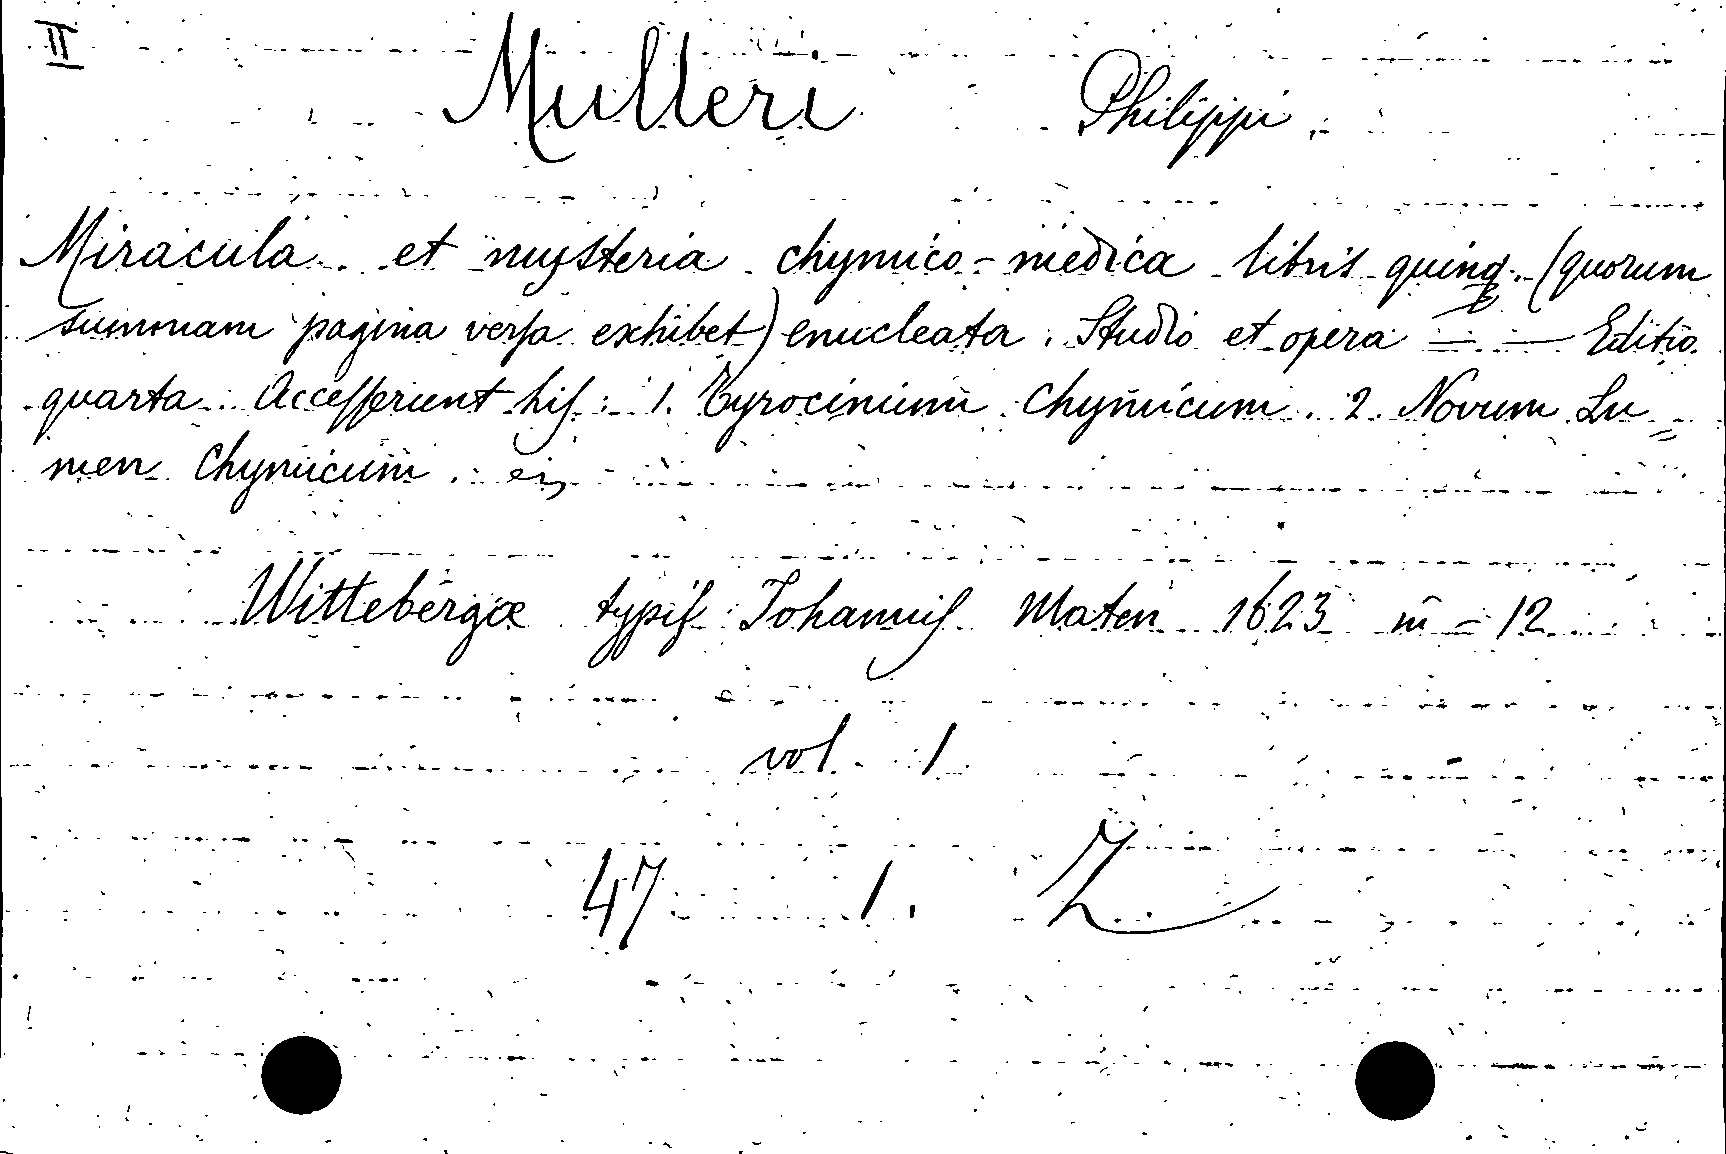 II
Mulleri Philippi
Miracula et mysteria chymico-medica libris quinq. (quorum
summam pagina versa exhibet) enucleata. Studio et opera = — Editio
quarta. Accesserunt his: 1. Tyrocinium Chymicum. 2. Novum Lu=
men Chymicum.
Wittebergæ typis Johannis Maten 1623 in - 12
vol. 1
47 1. Z